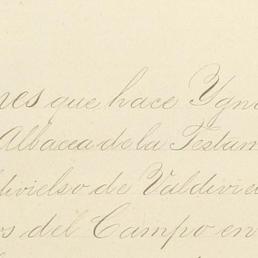 nes que hace Ygn
Albacea de la Testam
divielso de Valdivie
os del Campo en